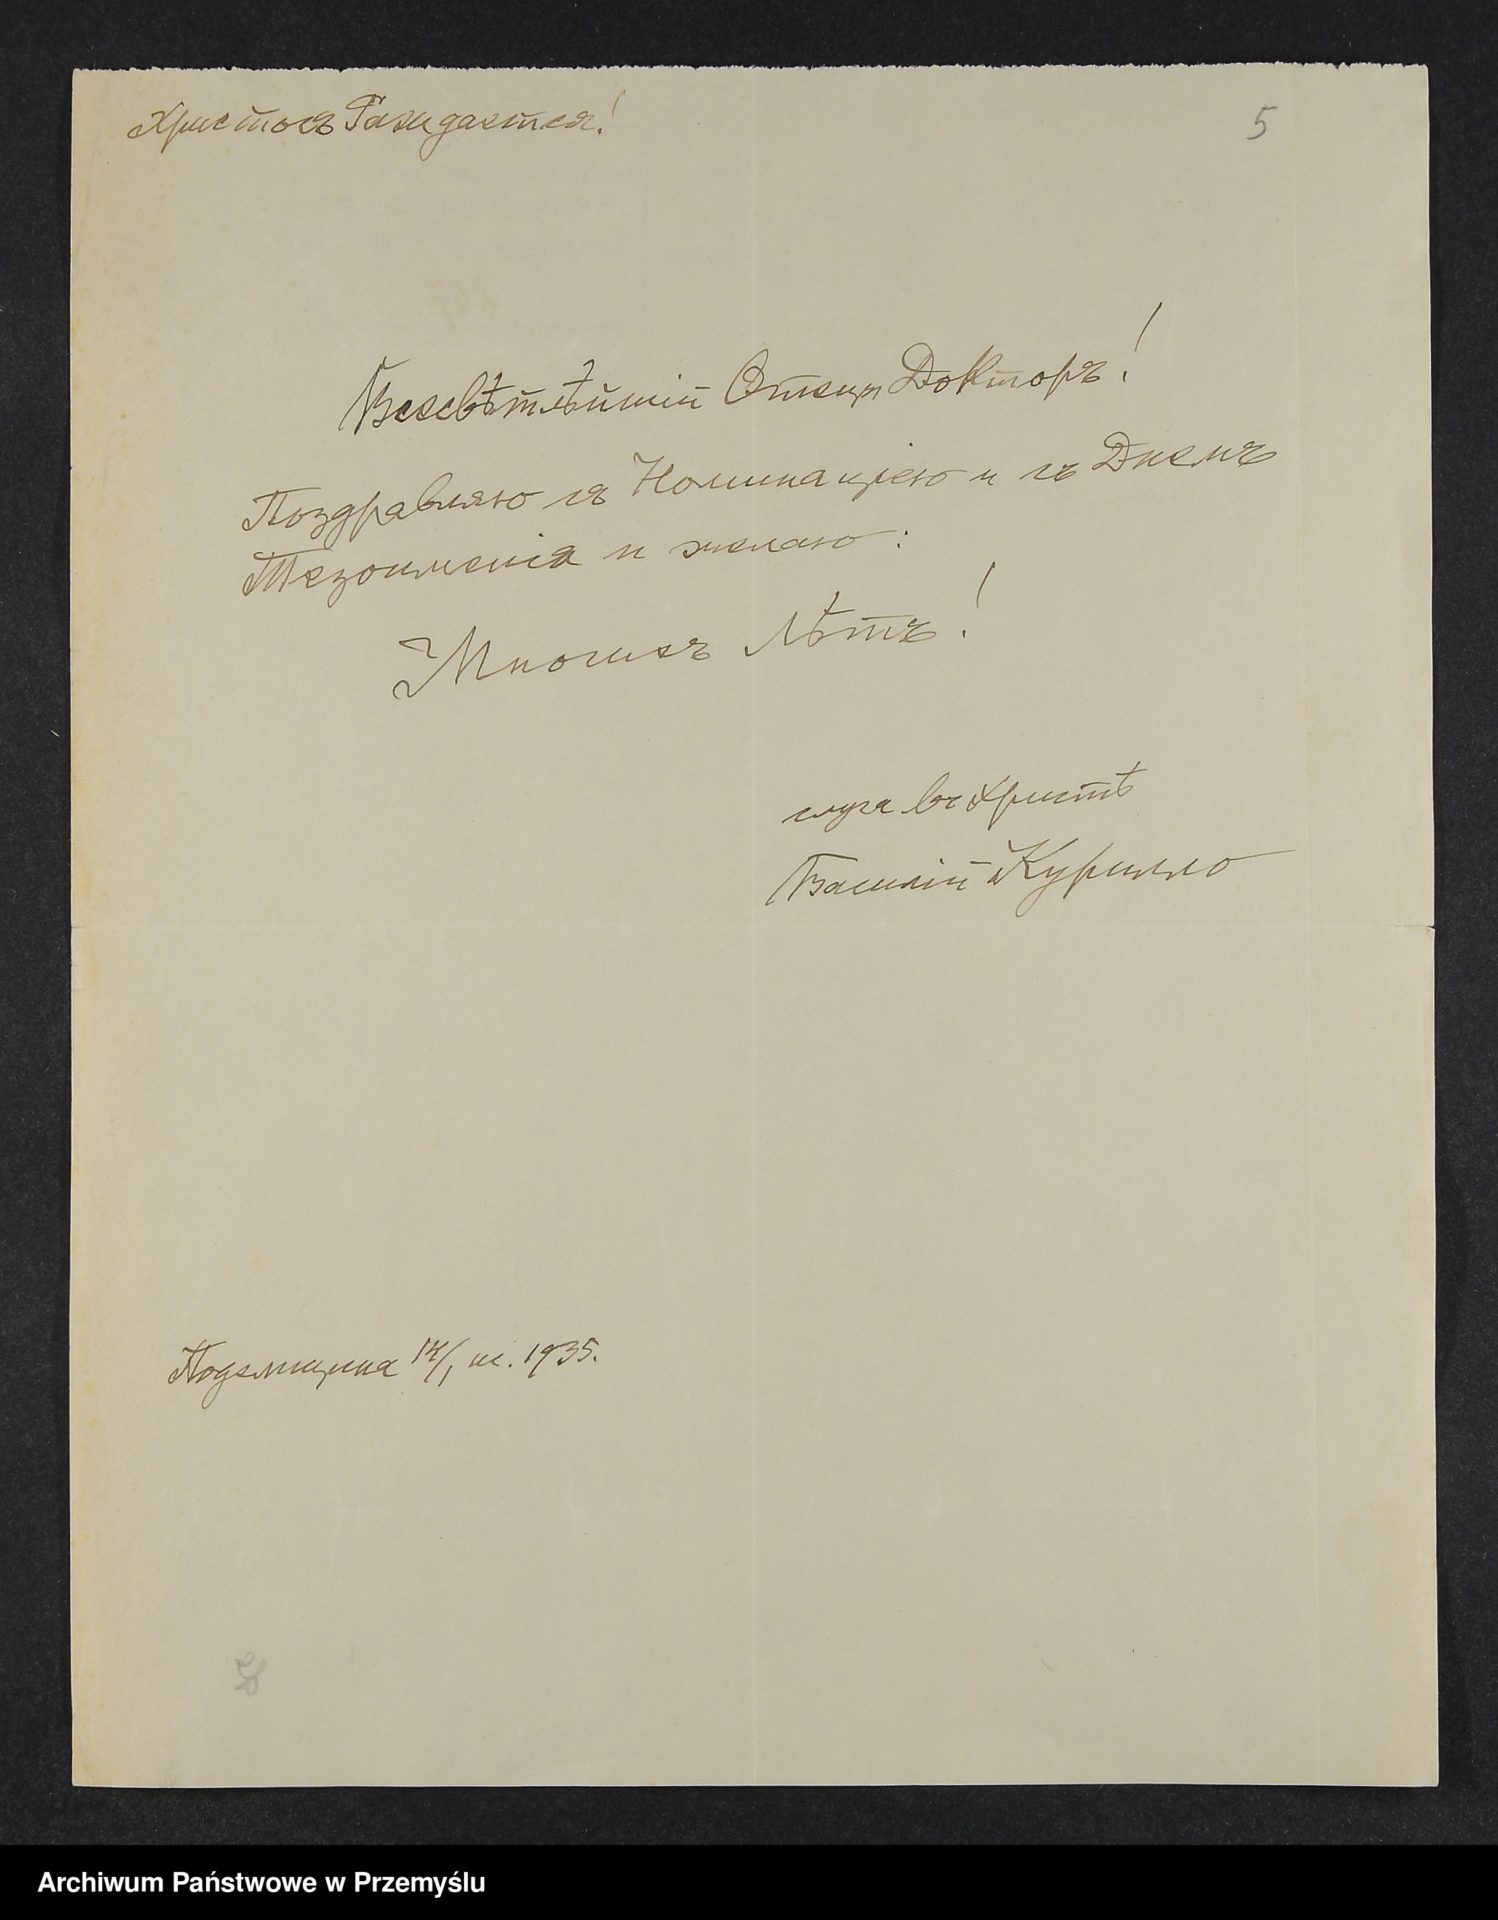 Христосъ Раждается!
5
Всесвѣтлѣйшій Отець Докторъ!
Поздравляю съ Номинаціею и съ Днемъ
Тезоименія и желаю:
Многихъ Лѣтъ!
слуга въ Христѣ
Василій Курилло
14/1 н. 1935.
Archiwum Państwowe w Przemyślu